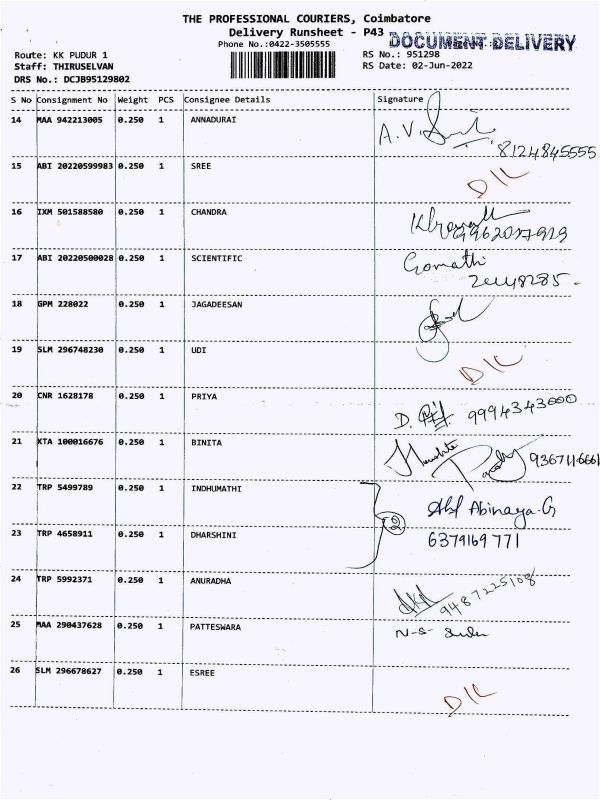 THE PROFESSIONAL COURIERS, Coimbatore
Delivery Runsheet - P43
DOCUMENT DELIVERY
Phone No.:0422-3505555
Route: KK PUDUR 1
RS No.: 951298
Staff: THIRUSELVAN
RS Date: 02-Jun-2022
DRS No.: DCJB95129802
S No Consignment No Weight PCS Consignee Details Signature
14 MAA 942213005 0.250 1 ANNADURAI A.V.
8124845555
15 ABI 20220599983 0.250 1 SREE D/L
16 IXM 501588580 0.250 1 CHANDRA
9962017919
17 ABI 20220500028 0.250 1 SCIENTIFIC Gomathi
18 GPM 228022 0.250 1 JAGADEESAN
19 SLM 296748230 0.250 1 UDI D/L
20 CNR 1628178 0.250 1 PRIYA D. 9994343000
21 KTA 100016676 0.250 1 BINITA 9367116661
22 TRP 5499789 0.250 1 INDHUMATHI Abinaya.G
2
23 TRP 4658911 0.250 1 DHARSHINI 6379169771
24 TRP 5992371 0.250 1 ANURADHA 9487225108
25 MAA 290437628 0.250 1 PATTESWARA N-S-
26 SLM 296678627 0.250 1 ESREE D/L